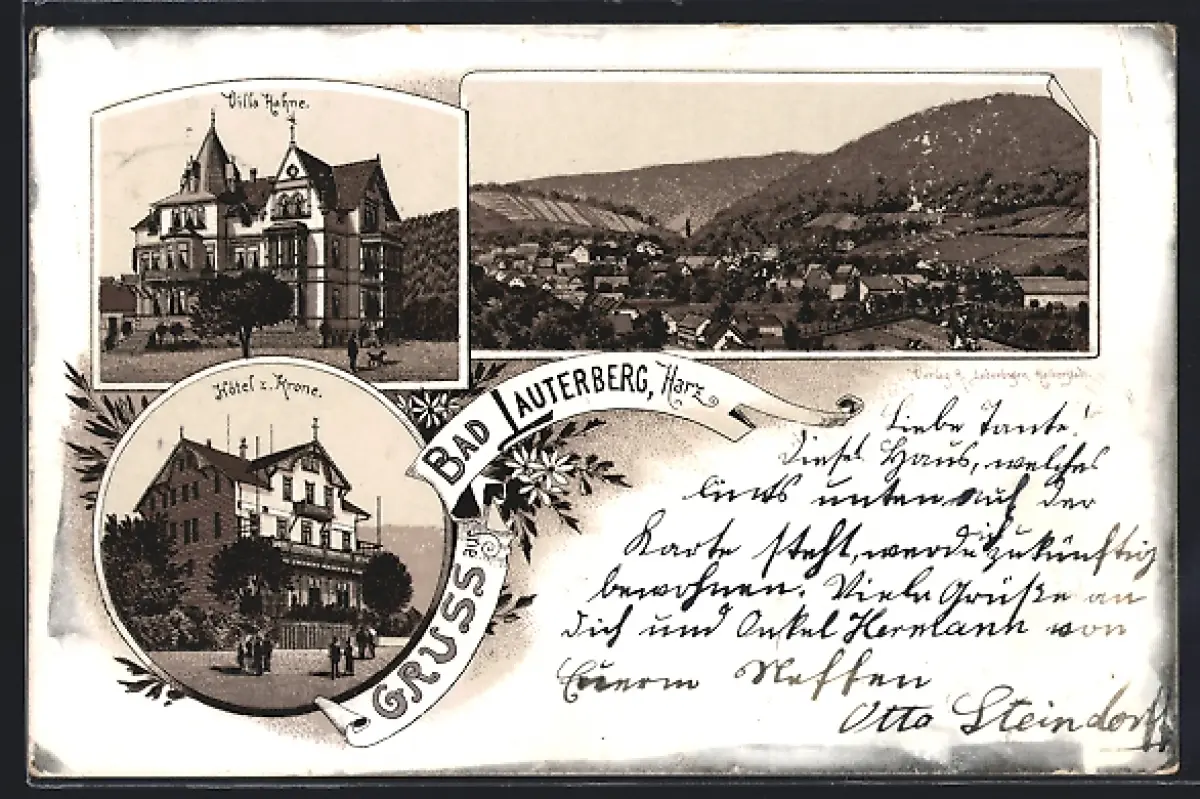 Villa Hahne.
Hôtel z. Krone.
GRUSS aus
BAD LAUTERBERG, Harz
Liebe Tante!
Dieses Haus, welches
links unten auf der
Karte steht, werde ich zukünftig
bewohnen. Viele Grüße an
dich und Onkel Hermann von
Euerm Neffen
Otto Steindorff